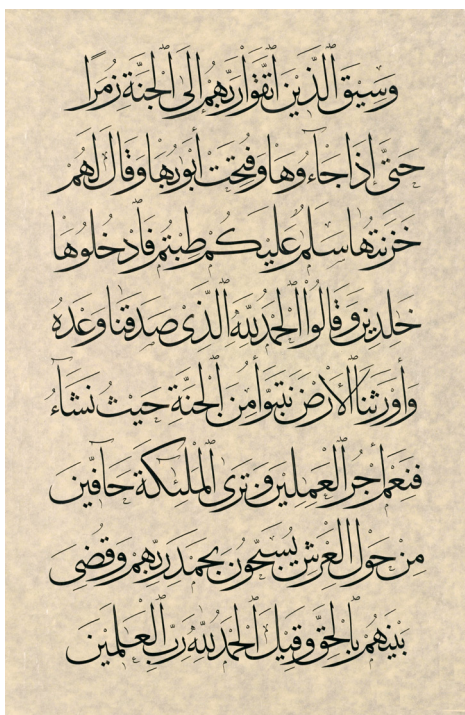 وَسِيقَ ٱلَّذِينَ ٱتَّقَوْا۟ رَبَّهُمْ إِلَى ٱلْجَنَّةِ زُمَرًا
حَتَّىٰٓ إِذَا جَآءُوهَا وَفُتِحَتْ أَبْوَٰبُهَا وَقَالَ لَهُمْ
خَزَنَتُهَا سَلَٰمٌ عَلَيْكُمْ طِبْتُمْ فَٱدْخُلُوهَا
خَٰلِدِينَ وَقَالُوا۟ ٱلْحَمْدُ لِلَّهِ ٱلَّذِى صَدَقَنَا وَعْدَهُۥ
وَأَوْرَثَنَا ٱلْأَرْضَ نَتَبَوَّأُ مِنَ ٱلْجَنَّةِ حَيْثُ نَشَآءُ
فَنِعْمَ أَجْرُ ٱلْعَٰمِلِينَ وَتَرَى ٱلْمَلَٰٓئِكَةَ حَآفِّينَ
مِنْ حَوْلِ ٱلْعَرْشِ يُسَبِّحُونَ بِحَمْدِ رَبِّهِمْ وَقُضِىَ
بَيْنَهُم بِٱلْحَقِّ وَقِيلَ ٱلْحَمْدُ لِلَّهِ رَبِّ ٱلْعَٰلَمِينَ